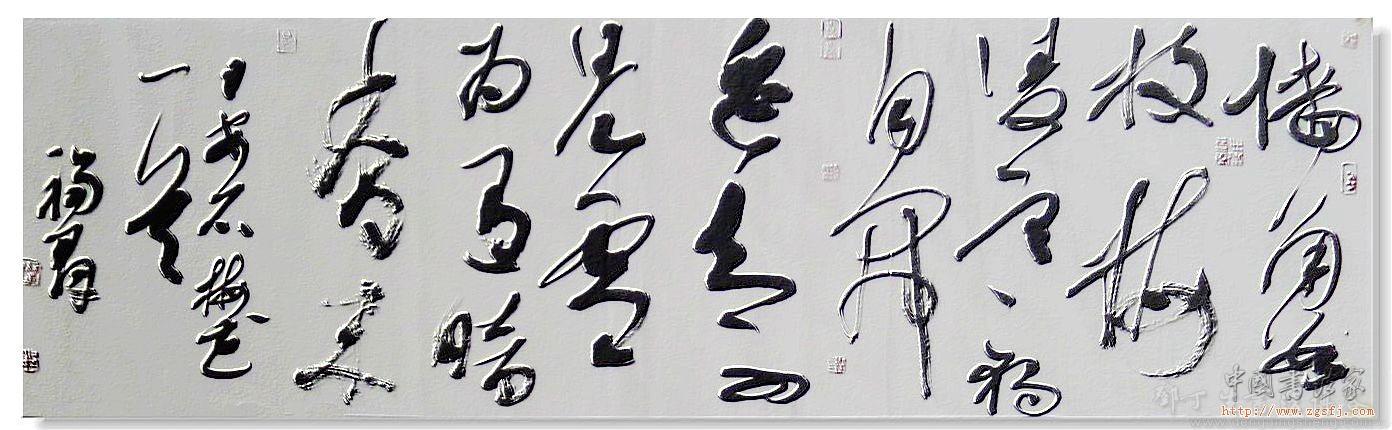 墙角数
枝梅
凌寒独
自開
遥知不
是雪
为有暗
香来
王安石梅花
一首
中国书法家
http://www.zgsfj.com